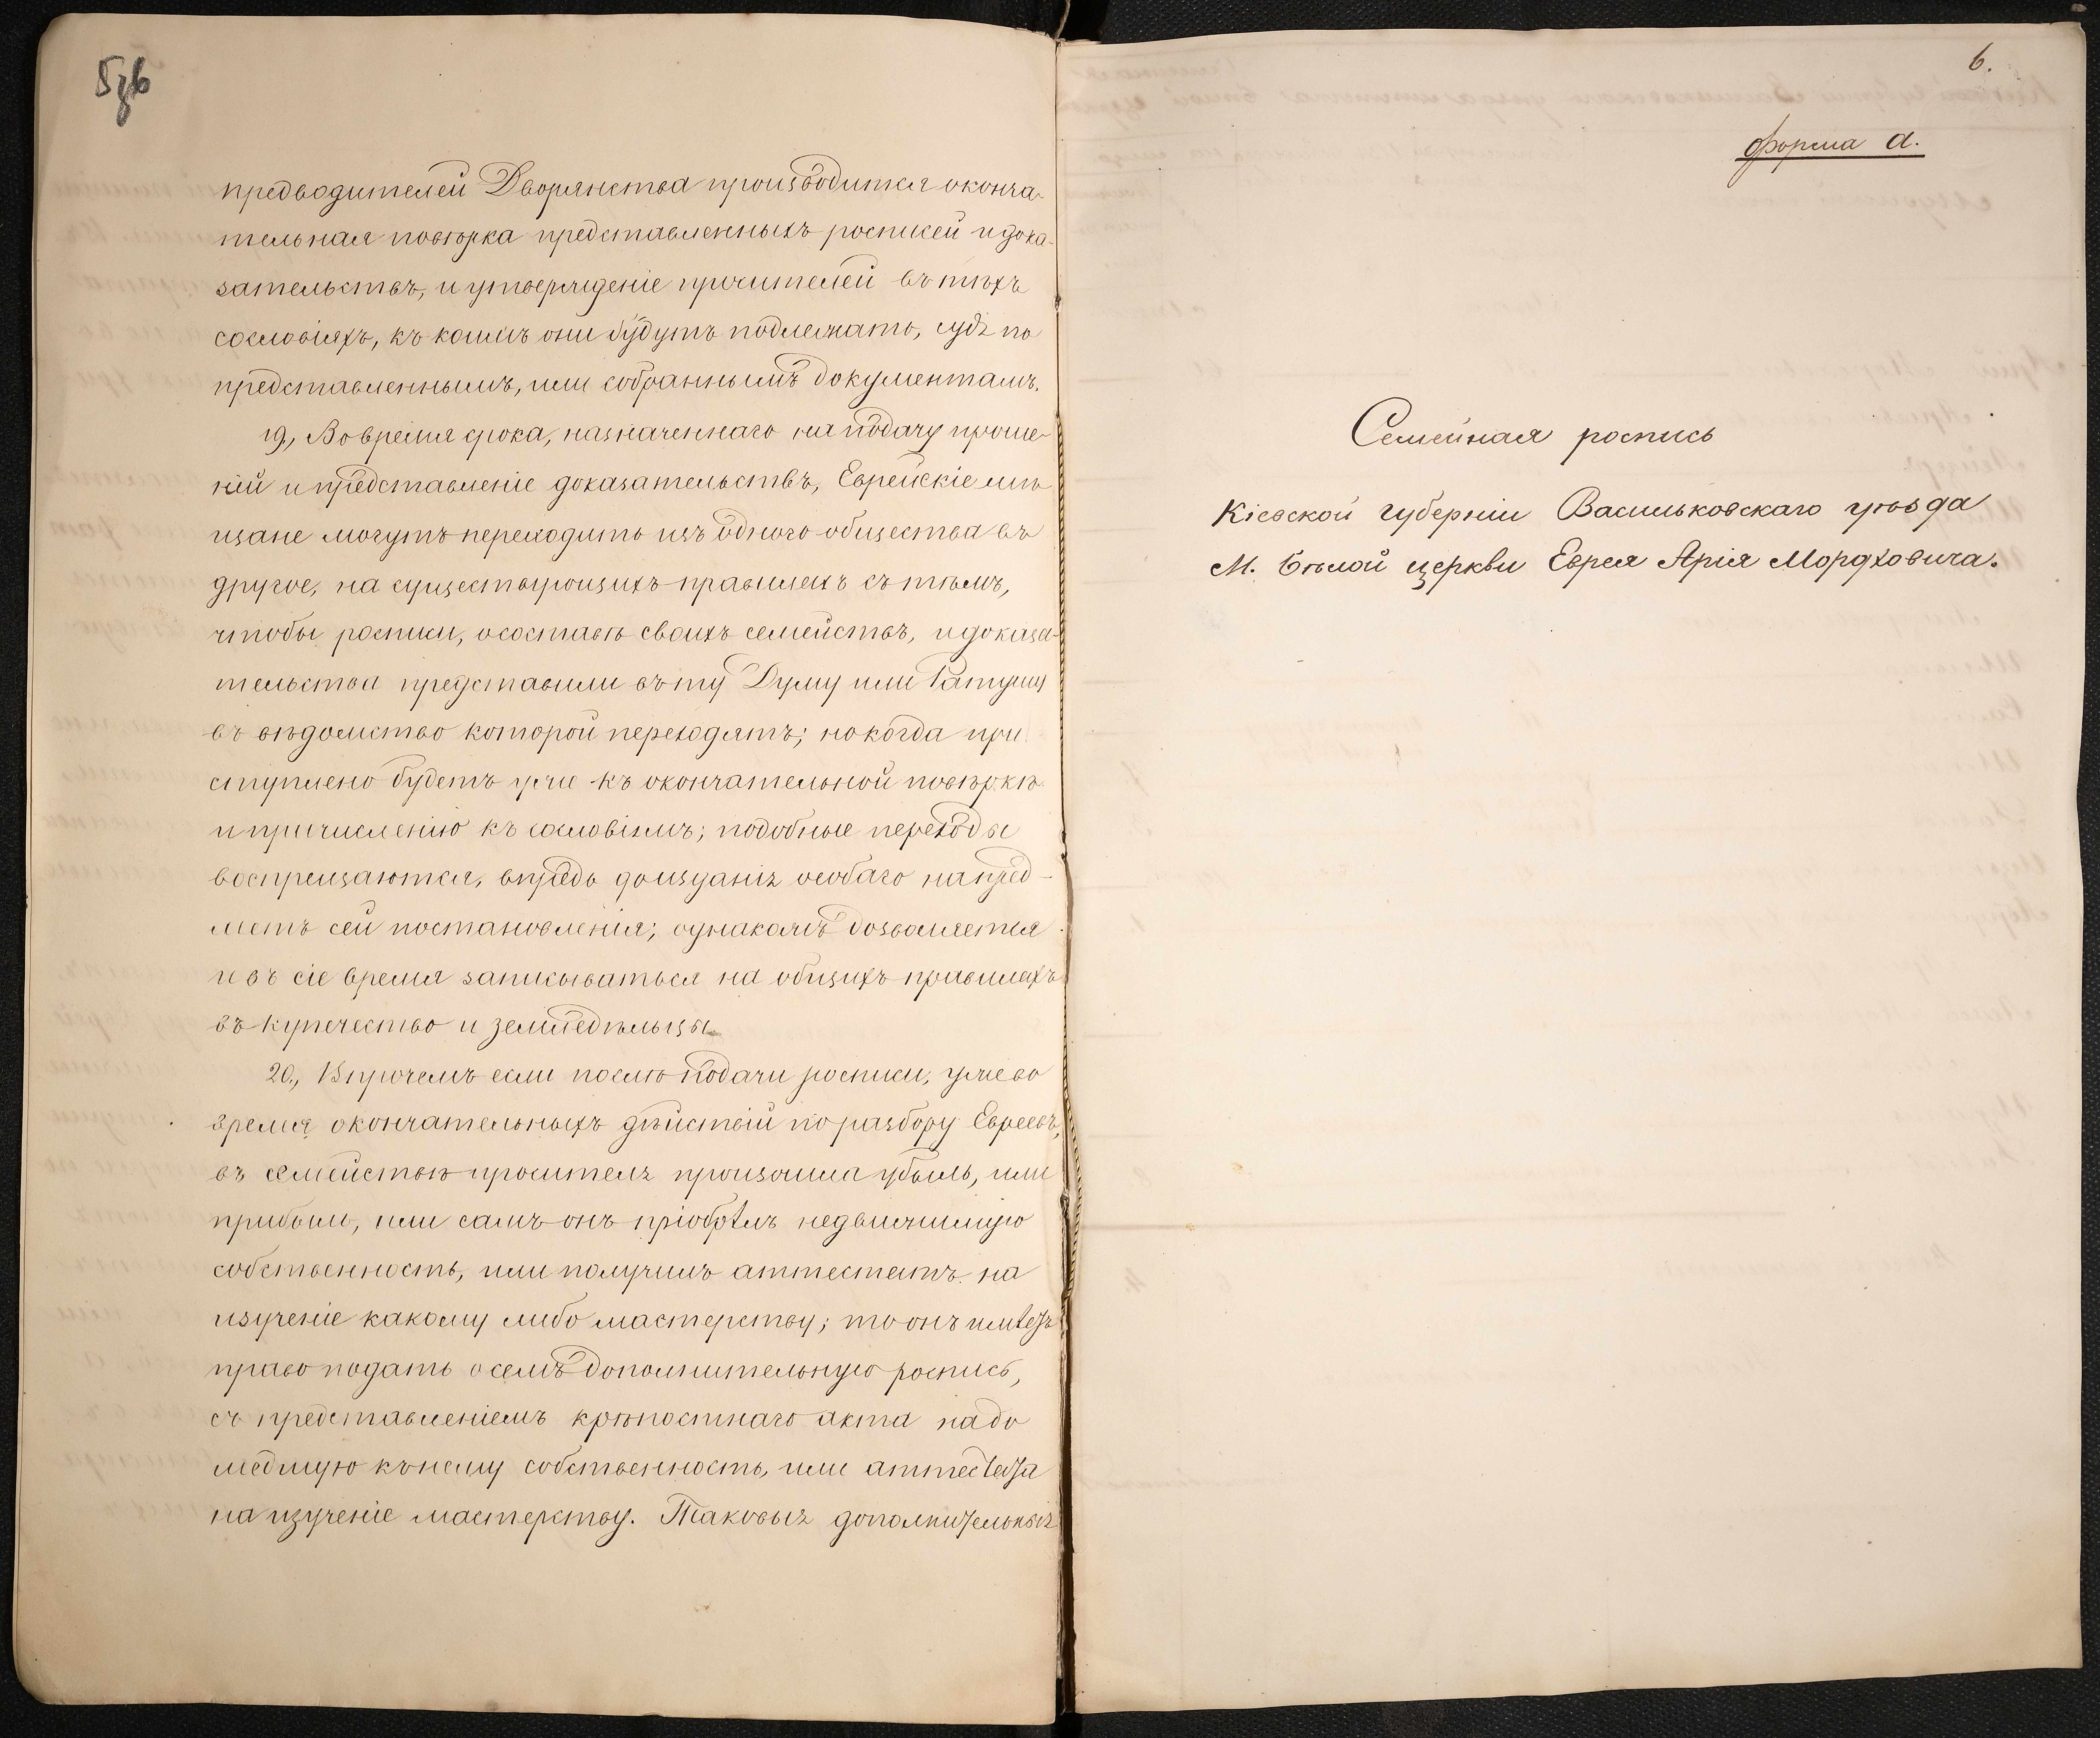 5зв
предводителей Дворянства производится оконча-
тельная повѣрка представленныхъ росписей и дока-
зательствъ, и утвержденіе просителей въ тѣхъ
сословіяхъ, къ коимъ они будутъ подлежать, судя по
представленнымъ, или собраннымъ документамъ.
19., Во время срока, назначеннаго на подачу проше-
ній и представленіе доказательствъ, Еврейскіе мѣ
щане могутъ переходить изъ одного общества въ
другое, на существующихъ правилахъ съ тѣмъ,
чтобы росписи, о составѣ своихъ семействъ, и доказа-
тельства представили въ ту Думу или Ратушу
въ вѣдомство которой переходятъ; но когда при
ступлено будетъ уже къ окончательной повѣркѣ
и причисленію къ сословіямъ; подобные переходы
воспрещаются, впредь до изданія особаго на пред-
метъ сей постановленія; однакожъ дозволяется
и въ сіе время записываться на общихъ правилахъ
въ купечество и земледѣльцы
20., Впрочемъ если послѣ подачи росписи, уже во
время окончательныхъ дѣйствій по разбору Евреевъ,
въ семействѣ просителя произошла убыль, или
прибыль, или самъ онъ пріобрѣлъ недвижимую
собственность, или получилъ аттестатъ на
изученіе какому либо мастерству; то онъ имѣетъ
право подать о семъ дополнительную роспись,
съ представленіемъ крѣпостнаго акта на до
шедшую къ нему собственность, или аттестата
на изученіе мастерству. Таковыя дополнительныя
6.
Форма а.
Семейная роспись
Кіевской губерніи Васильковскаго уѣзда
М. Бѣлой церкви Еврея Арія Мордховича.